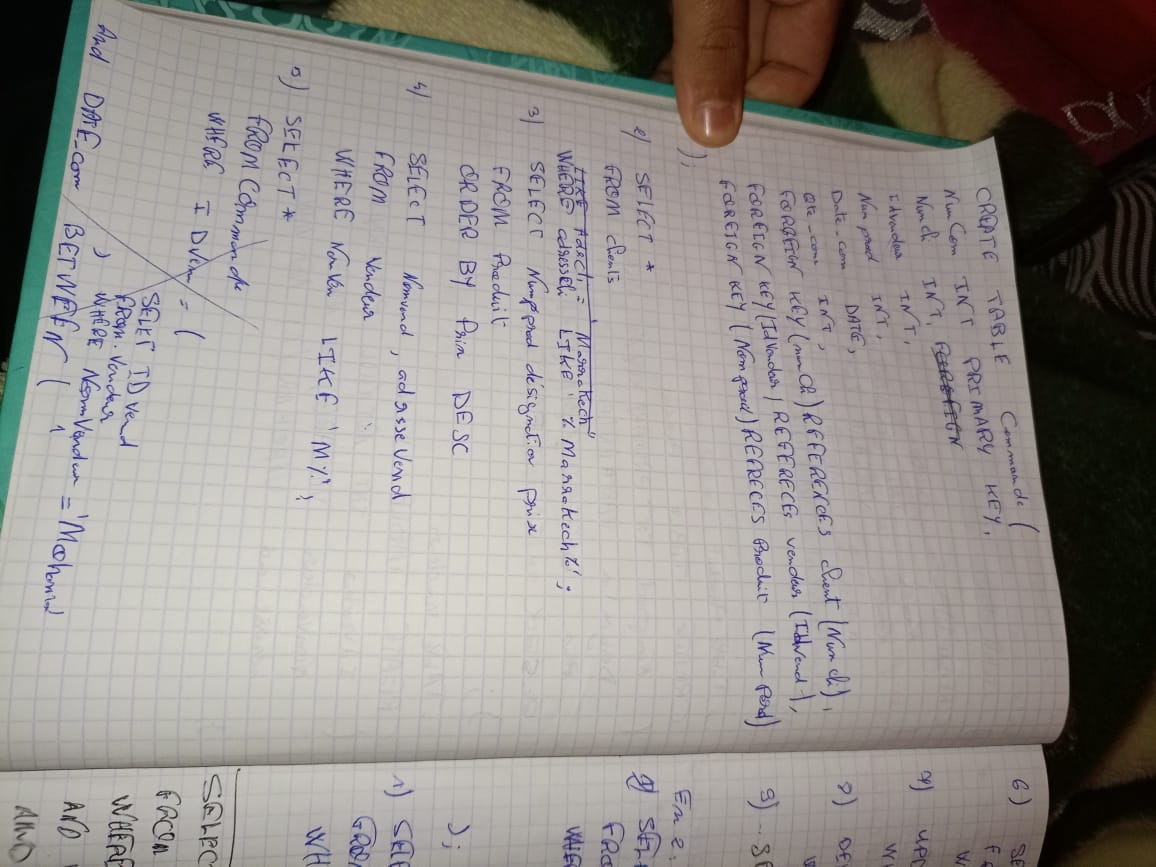 CREATE TABLE Commande (
NumCom INT PRIMARY KEY,
Numcli INT, FOREIGN
Idvendeur INT,
Num prod INT,
Date_com DATE,
Qte_com INT,
FOREIGN KEY (numCli) REFERENCES client (Numcli),
FOREIGN KEY (IdVendeur) REFERECES vendeur (IdVend),
FOREIGN KEY (Numprod) REFRECES Produit (Numprod)
);
2) SELECT *
FROM clients
LIKE Adrcli = 'Marrakech'
WHERE adresscli LIKE '%Marrakech%';
3) SELECT Numprod désignation prix
FROM Produit
ORDER BY Prix DESC
4) SELECT Nomvend, adresseVend
FROM Vendeur
WHERE NomVen LIKE 'M%';
5) SELECT *
FROM Commande
WHERE IDVen = (
SELET IDvend
FROM Vendeur
) WHERE NomVendeur = 'Mohamed
And DATE_com BETWEEN (
6) SE
F
W
7) UPD
WH
8) DE
9) SE
Ex 2:
SEL
FRO
WHE
);
1) SELE
GRO
WH
SELEC
FROM
WHERE
AND
AND